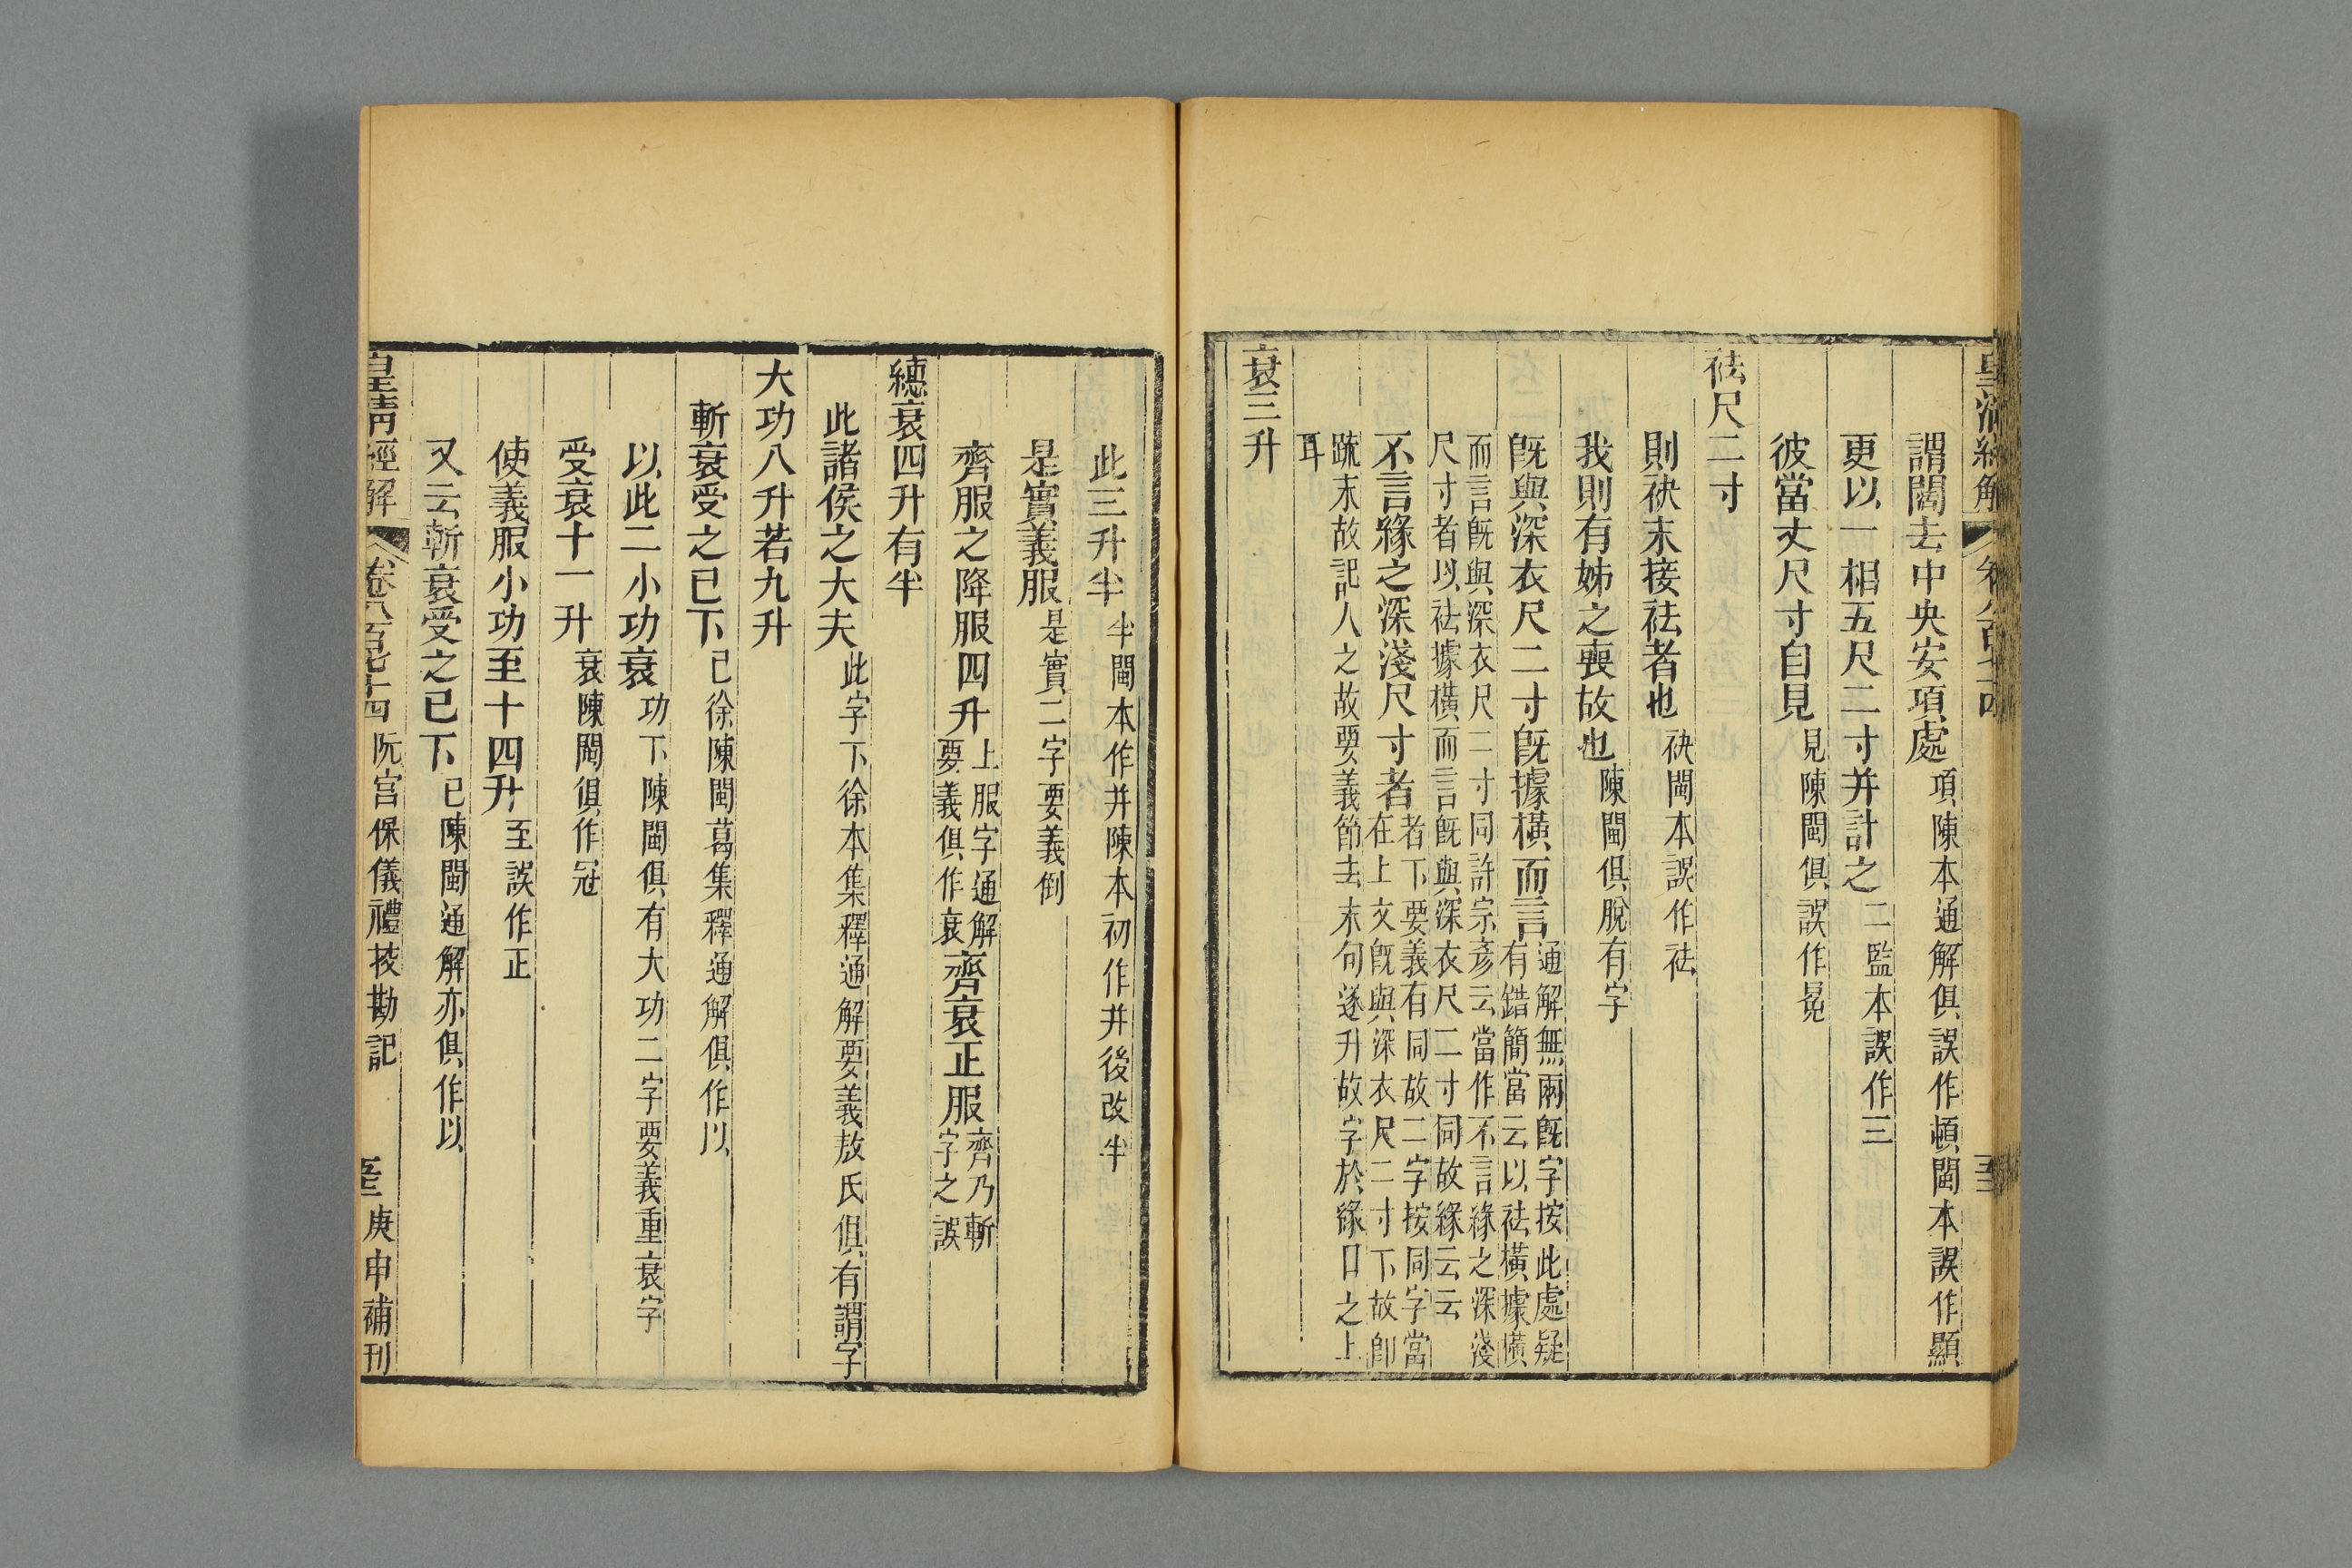 謂闊去中央安項處項陳本通解俱誤作頓閩本誤作顯
更以一相五尺二寸并計之二監本誤作三
彼當丈尺寸自見見陳閩俱誤作冕
袪尺二寸
則袂末接袪者也袂閩本誤作袪
我則有姊之喪故也陳閩俱脫有字
旣與深衣尺二寸旣據橫而言通解無兩旣字按此處疑
有錯簡當云以袪橫據橫
而言旣與深衣尺二寸同許宗彥云當作不言緣之深淺
尺寸者以袪據橫而言旣與深衣尺二寸同故緣云云
不言緣之深淺尺寸者者下要義有同故二字按同字當
在上文旣與深衣尺二寸下故卽
疏末故記人之故要義節去末句遂升故字於緣口之上
耳
衰三升
此三升半半閩本作并陳本初作并後改半
是實義服是實二字要義倒
齊服之降服四升上服字通解
要義俱作衰齊衰正服齊乃斬
字之誤
繐衰四升有半
此諸侯之大夫此字下徐本集釋通解要義敖氏俱有謂字
大功八升若九升
斬衰受之已下已徐陳閩葛集釋通解俱作以
以此二小功衰功下陳閩俱有大功二字要義重衰字
受衰十一升衰陳閩俱作冠
使義服小功至十四升至誤作正
又云斬衰受之已下已陳閩通解亦俱作以
皇淸經解 卷八百七十四 阮宮保儀禮挍勘記 庚申補刊